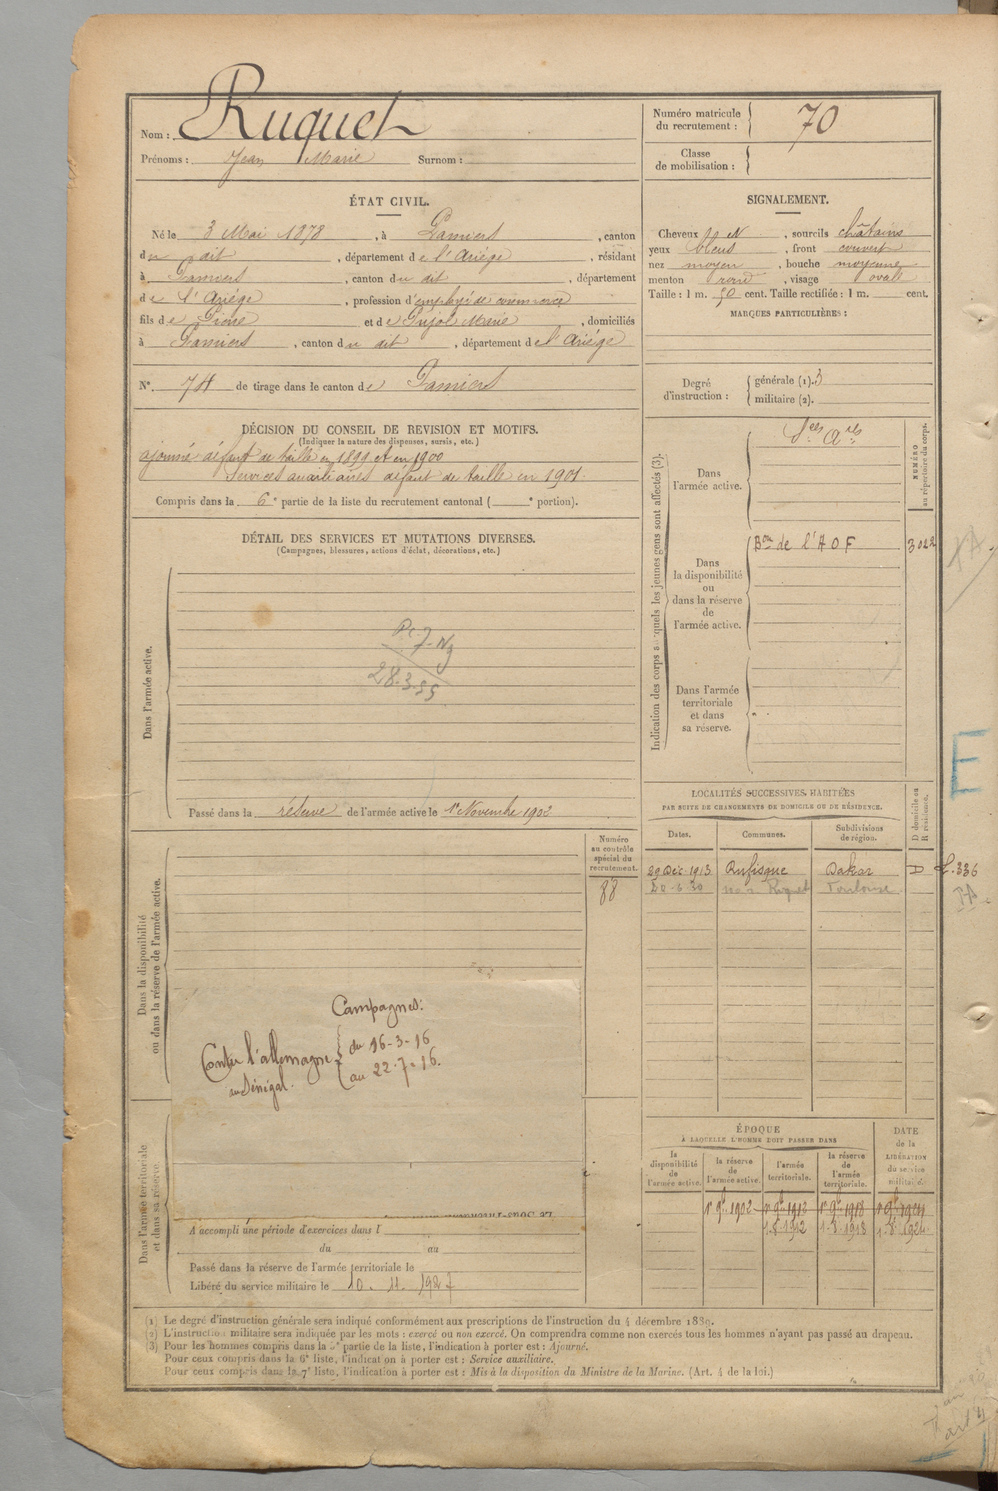 Nom : Ruquet
Prénoms : Jean Marie Surnom :
Numéro matricule du recrutement : 70
Classe de mobilisation :
ÉTAT CIVIL.
Né le 3 Mai 1878, à Pamiers, canton
du dit, département de l'Ariège, résidant
à Pamiers, canton du dit, département
de l'Ariège, profession d'employé de commerce
fils de Pierre et de Pujol Marie, domiciliés
à Pamiers, canton du dit, département de l'Ariège
N°. 74 de tirage dans le canton de Pamiers
SIGNALEMENT.
Cheveux N, sourcils châtains
yeux bleus, front couvert
nez moyen, bouche moyenne
menton rond, visage ovale
Taille : 1 m. 50 cent. Taille rectifiée : 1 m. cent.
MARQUES PARTICULIÈRES :
Degré d'instruction :
générale (1). 3
militaire (2).
DÉCISION DU CONSEIL DE REVISION ET MOTIFS.
(Indiquer la nature des dispenses, sursis, etc.)
ajourné défaut de taille en 1899 et en 1900
Services auxiliaires défaut de taille en 1901.
Compris dans la 6e partie de la liste du recrutement cantonal ( e portion).
DÉTAIL DES SERVICES ET MUTATIONS DIVERSES.
(Campagnes, blessures, actions d'éclat, décorations, etc.)
Dans l'armée active.
28.3.55
Passé dans la réserve de l'armée active le 1er Novembre 1902
Indication des corps auxquels les jeunes gens sont affectés (3).
NUMÉRO au répertoire du corps.
Dans l'armée active.
Sces Ares
Dans la disponibilité ou dans la réserve de l'armée active.
Bon de l'A O F 3022
Dans l'armée territoriale et dans sa réserve.
E
LOCALITÉS SUCCESSIVES HABITÉES
PAR SUITE DE CHANGEMENTS DE DOMICILE OU DE RÉSIDENCE.
D domicile ou R résidence.
Dates. Communes. Subdivisions de région.
29 Déc 1913 Rufisque Dakar D
Toulouse
Dans la disponibilité ou dans la réserve de l'armée active.
Numéro au contrôle spécial du recrutement.
88
Campagnes :
Contre l'allemagne au Sénégal.
du 16-3-16
au 22-7-16.
Dans l'armée territoriale et dans sa réserve.
A accompli une période d'exercices dans l
du au
Passé dans la réserve de l'armée territoriale le
Libéré du service militaire le 10. 11. 1927
ÉPOQUE
À LAQUELLE L'HOMME DOIT PASSER DANS
DATE de la LIBÉRATION du service militaire.
la disponibilité de l'armée active. la réserve de l'armée active. l'armée territoriale. la réserve de l'armée territoriale.
1er 9bre 1902 1er 9bre 1912 1er 9bre 1918
1.8.1912 1.8.1918 1.8.1924
(1) Le degré d'instruction générale sera indiqué conformément aux prescriptions de l'instruction du 4 décembre 1889.
(2) L'instruction militaire sera indiquée par les mots : exercé ou non exercé. On comprendra comme non exercés tous les hommes n'ayant pas passé au drapeau.
(3) Pour les hommes compris dans la 5e partie de la liste, l'indication à porter est : Ajourné.
Pour ceux compris dans la 6e liste, l'indication à porter est : Service auxiliaire.
Pour ceux compris dans la 7e liste, l'indication à porter est : Mis à la disposition du Ministre de la Marine. (Art. 4 de la loi.)